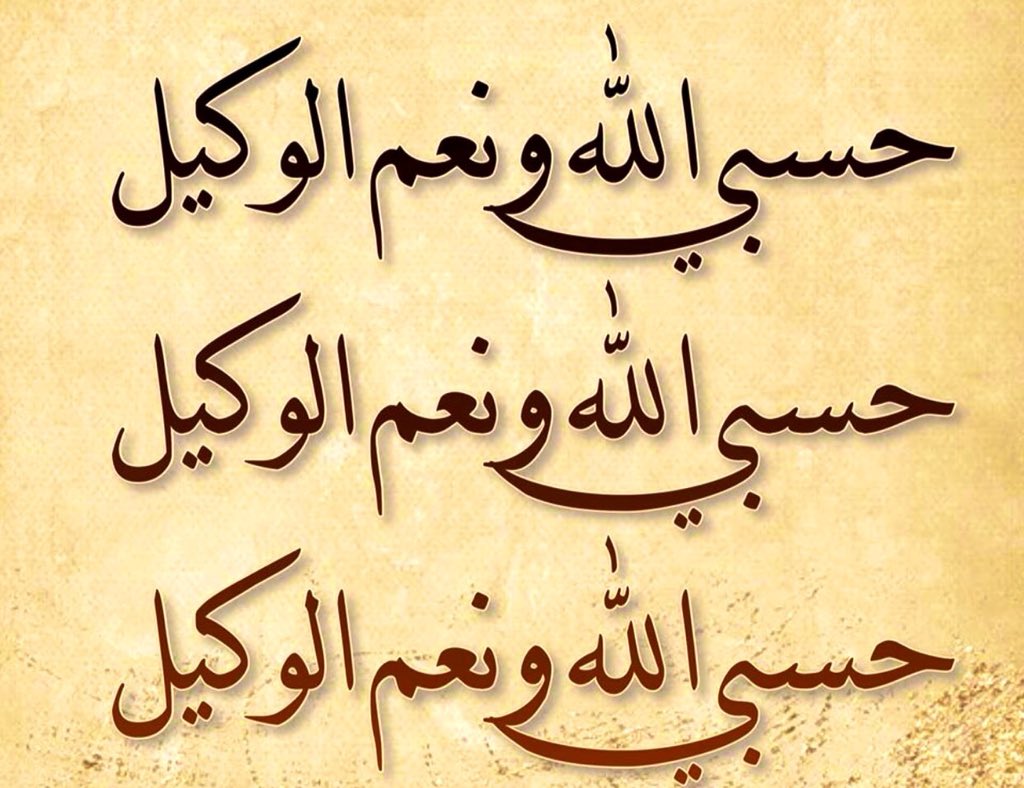 حسبي الله ونعم الوكيل
حسبي الله ونعم الوكيل
حسبي الله ونعم الوكيل